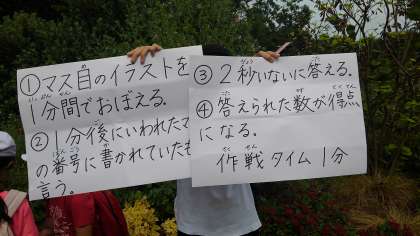 ①マス目のイラストを
1分間でおぼえる。
②1分後にいわれたマ
の番号に書かれていたも
言う。
③2秒いないに答える。
④答えられた数が得点
になる。
作戦タイム1分